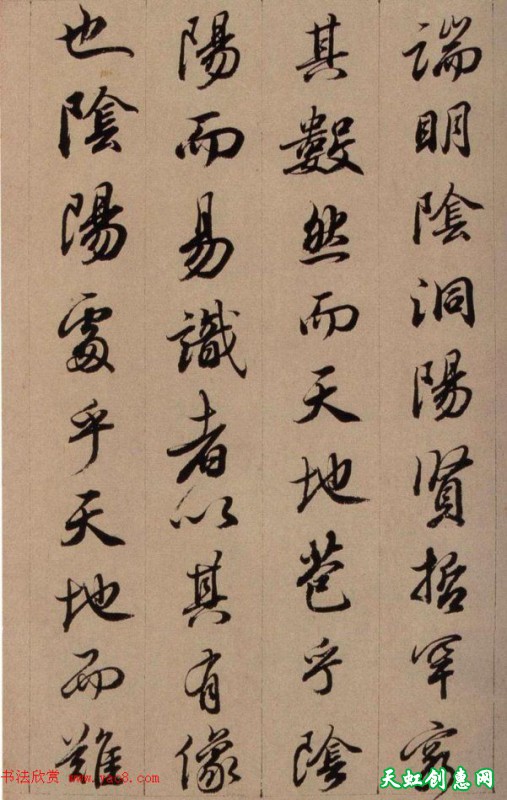 端明陰洞陽賢哲罕窮
其數然而天地苞乎陰
陽而易識者以其有像
也陰陽處乎天地而難
书法欣赏 www.yac8.com
天虹创惠网